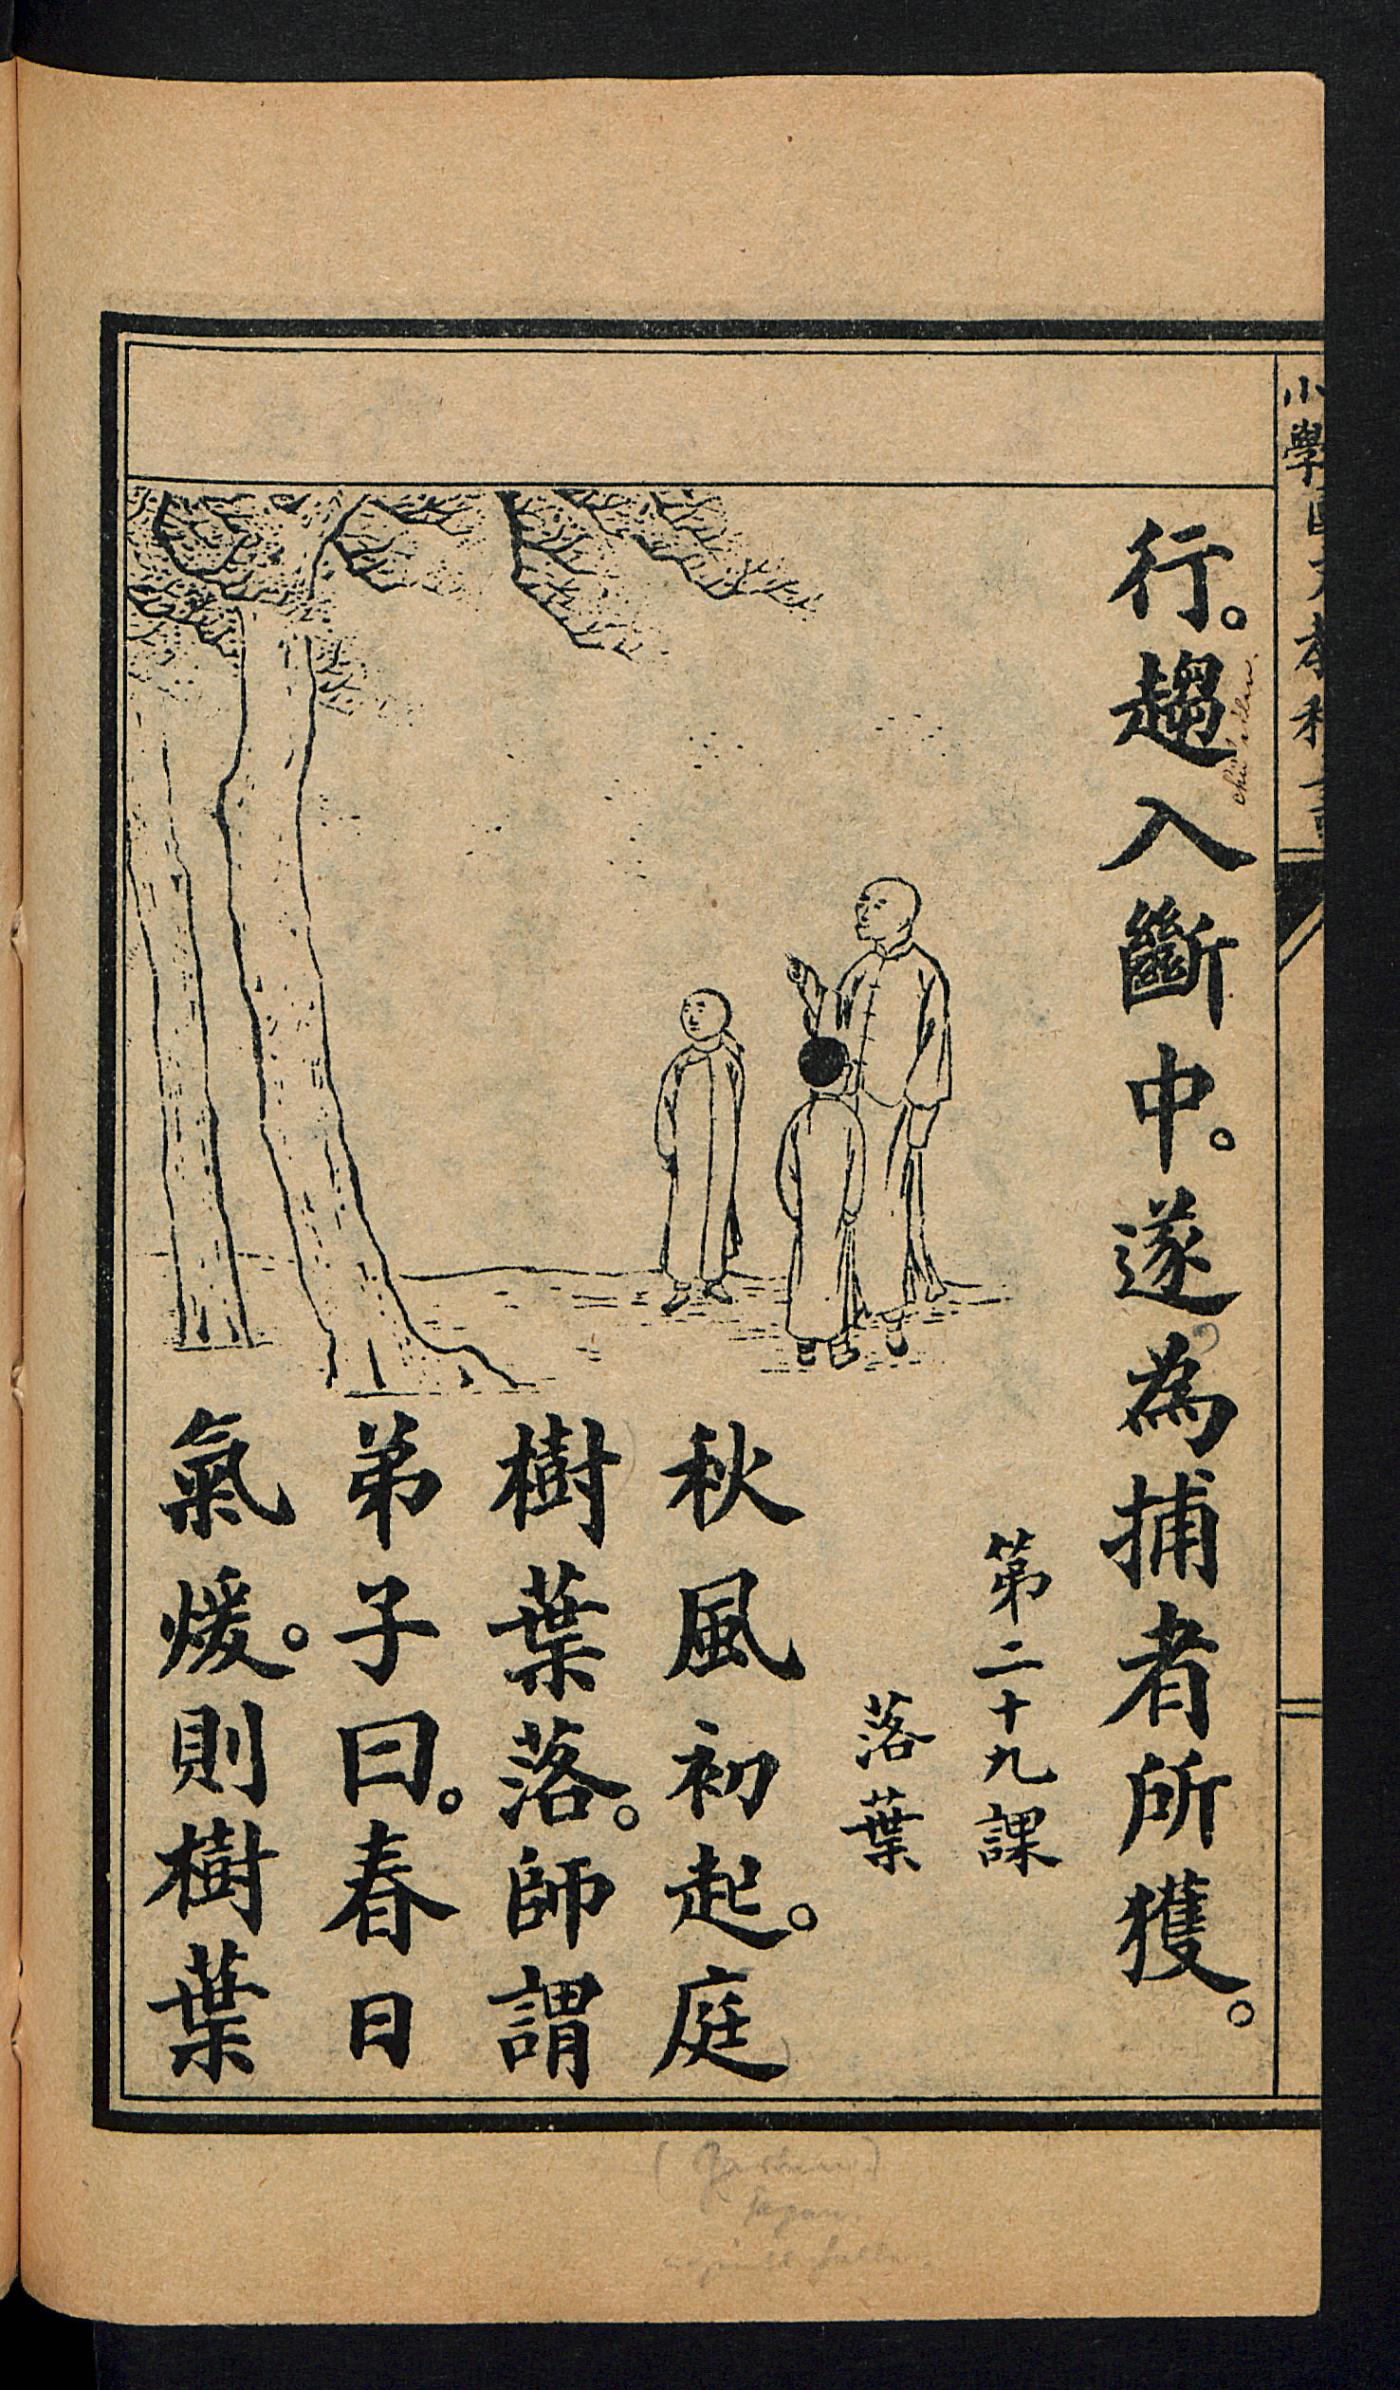 小學國文教科書
行。趨入斷中。遂為捕者所獲。
第二十九課
落葉
秋風初起。庭
樹葉落。師謂
弟子曰。春日
氣煖。則樹葉